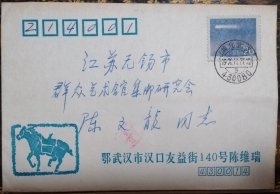 214001
江苏无锡市
群众艺术馆集邮研究会
陈文龄同志
鄂武汉市汉口友益街140号陈维瑞
430014